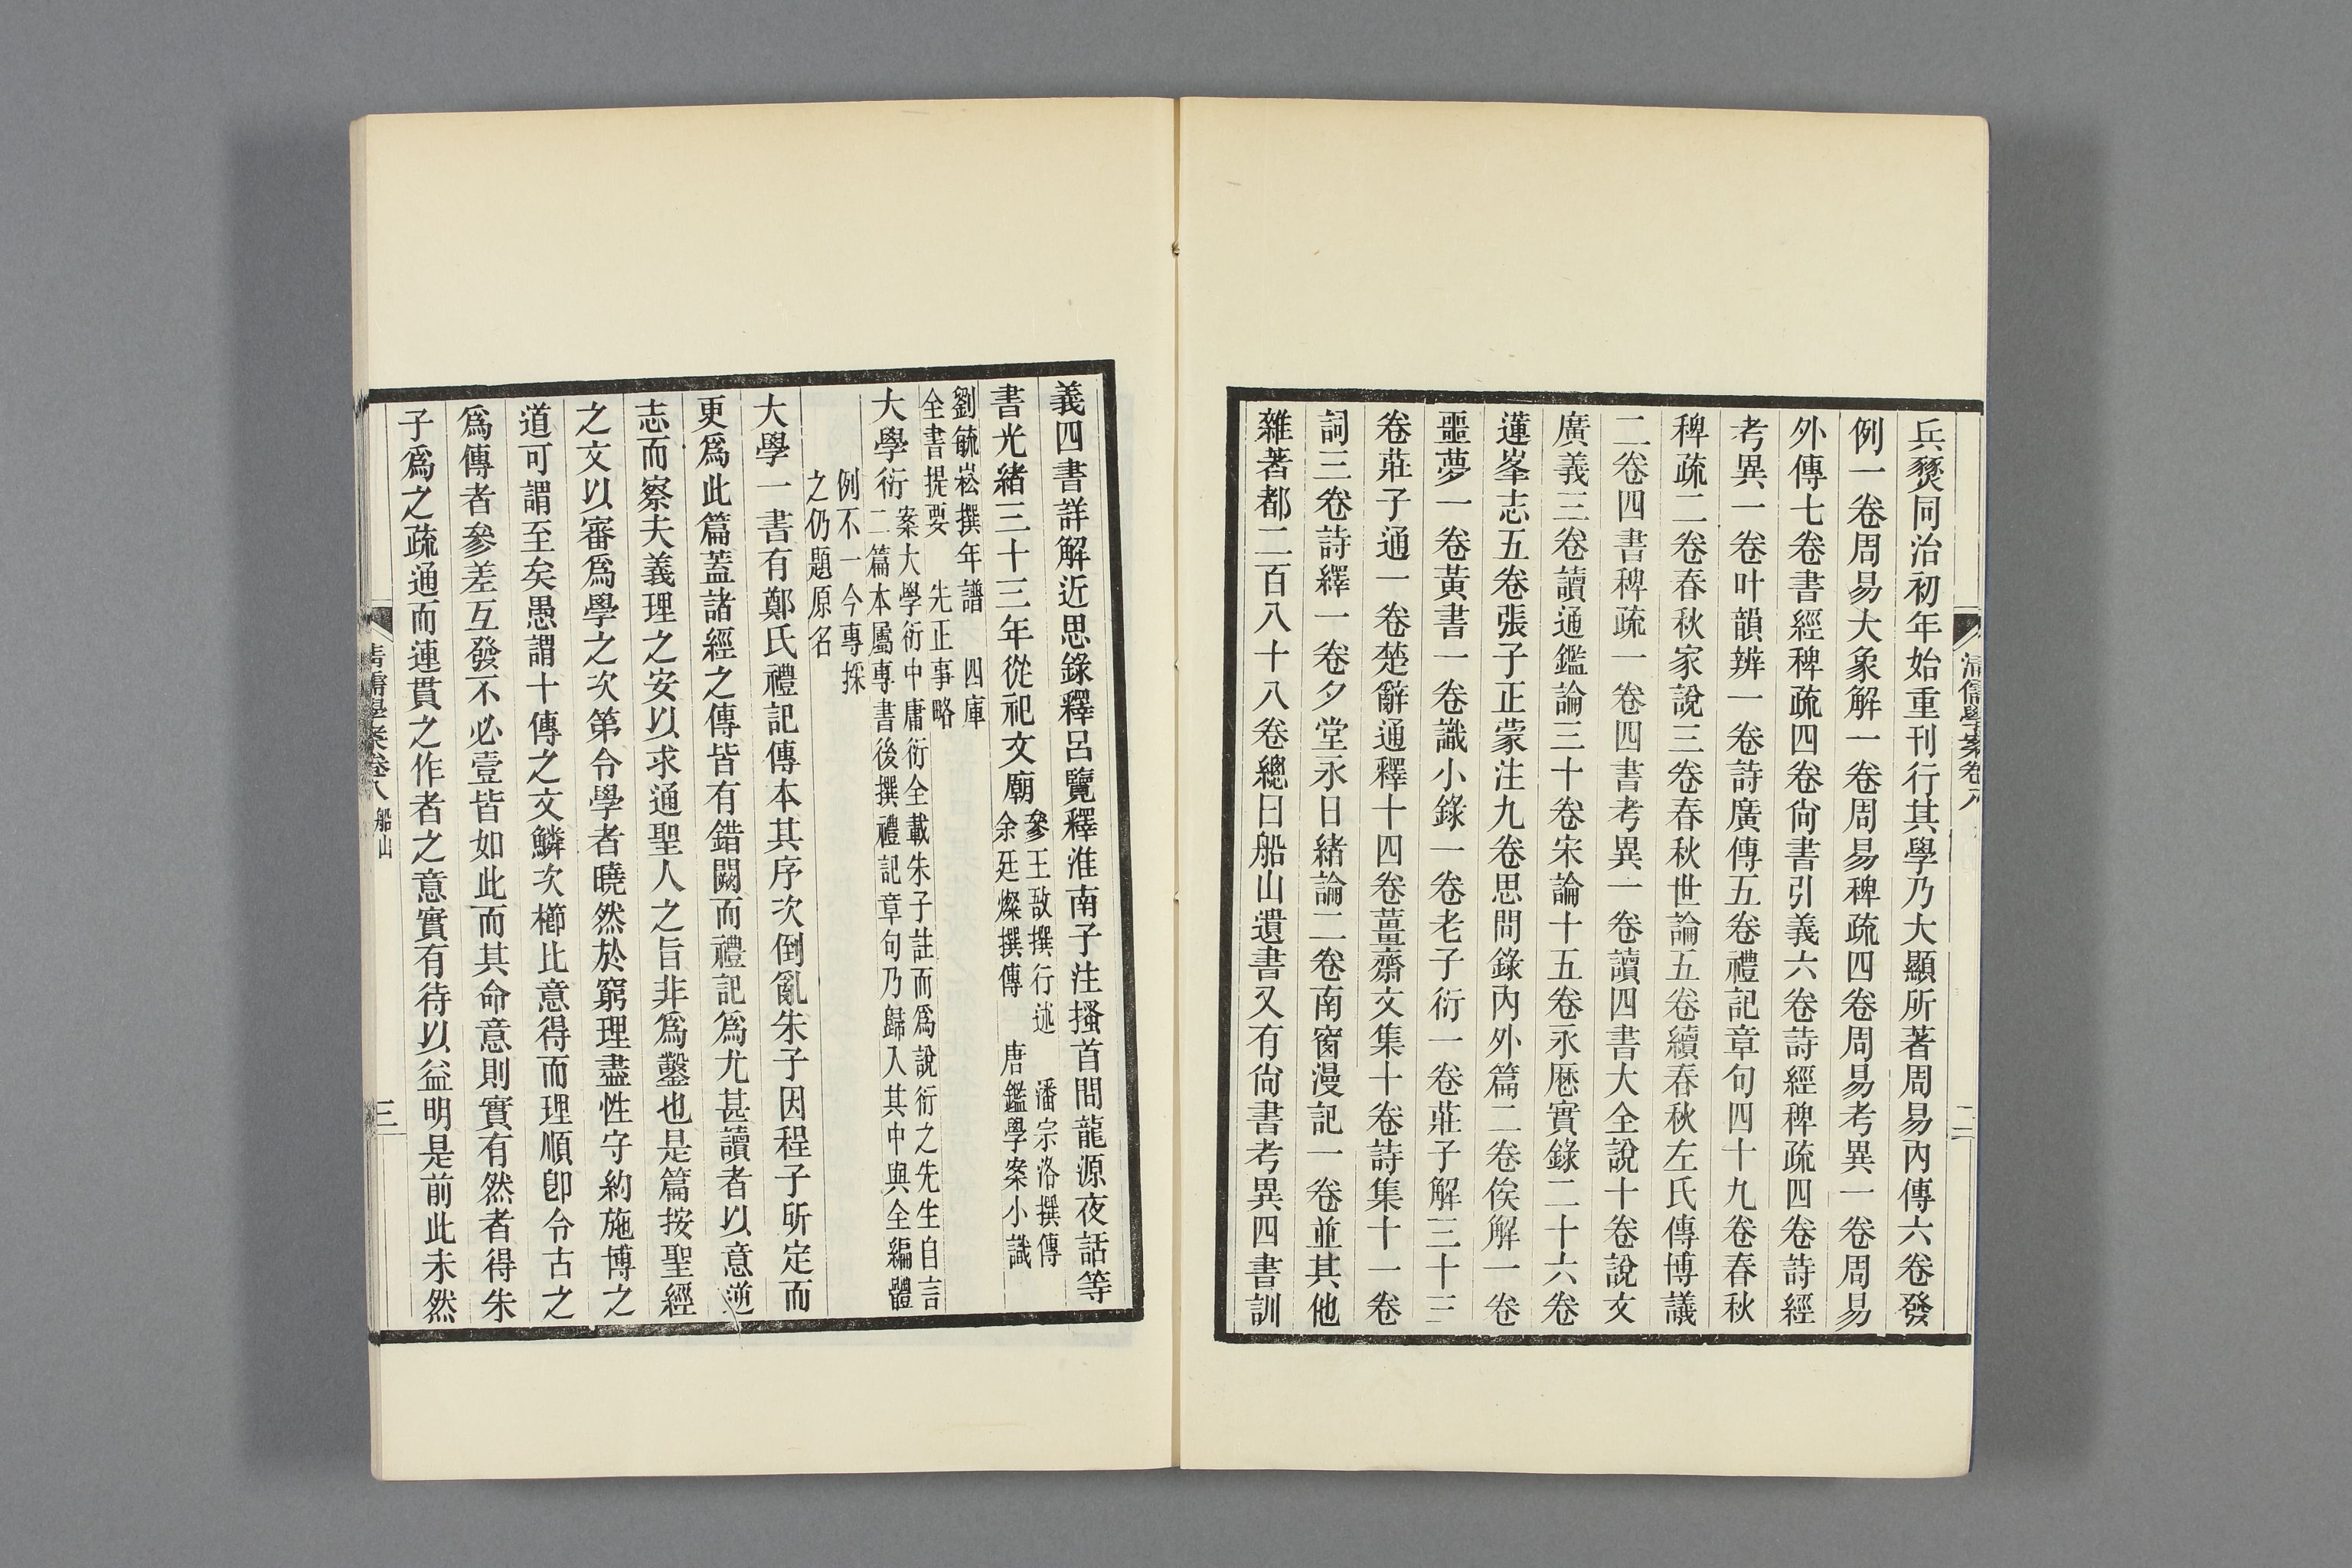 清儒學案卷八
二
兵燹同治初年始重刊行其學乃大顯所著周易內傳六卷發
例一卷周易大象解一卷周易稗疏四卷周易考異一卷周易
外傳七卷書經稗疏四卷尙書引義六卷詩經稗疏四卷詩經
考異一卷叶韻辨一卷詩廣傳五卷禮記章句四十九卷春秋
稗疏二卷春秋家說三卷春秋世論五卷續春秋左氏傳博議
二卷四書稗疏一卷四書考異一卷讀四書大全說十卷說文
廣義三卷讀通鑑論三十卷宋論十五卷永曆實錄二十六卷
蓮峯志五卷張子正蒙注九卷思問錄內外篇二卷俟解一卷
噩夢一卷黃書一卷識小錄一卷老子衍一卷莊子解三十三
卷莊子通一卷楚辭通釋十四卷薑齋文集十卷詩集十一卷
詞三卷詩繹一卷夕堂永日緒論二卷南窗漫記一卷並其他
雜著都二百八十八卷總曰船山遺書又有尙書考異四書訓
義四書詳解近思錄釋呂覽釋淮南子注搔首問龍源夜話等
書光緒三十三年從祀文廟參王敔撰行述 潘宗洛撰傳
余廷燦撰傳 唐鑑學案小識
劉毓崧撰年譜 四庫
全書提要 先正事略
大學衍案大學衍中庸衍全載朱子註而爲說衍之先生自言
二篇本屬專書後撰禮記章句乃歸入其中與全編體
例不一今專採
之仍題原名
大學一書有鄭氏禮記傳本其序次倒亂朱子因程子所定而
更爲此篇蓋諸經之傳皆有錯闕而禮記爲尤甚讀者以意逆
志而察夫義理之安以求通聖人之旨非爲鑿也是篇按聖經
之文以審爲學之次第令學者曉然於窮理盡性守約施博之
道可謂至矣愚謂十傳之文鱗次櫛比意得而理順卽令古之
爲傳者參差互發不必壹皆如此而其命意則實有然者得朱
子爲之疏通而連貫之作者之意實有待以益明是前此未然
清儒學案卷八 船山
三